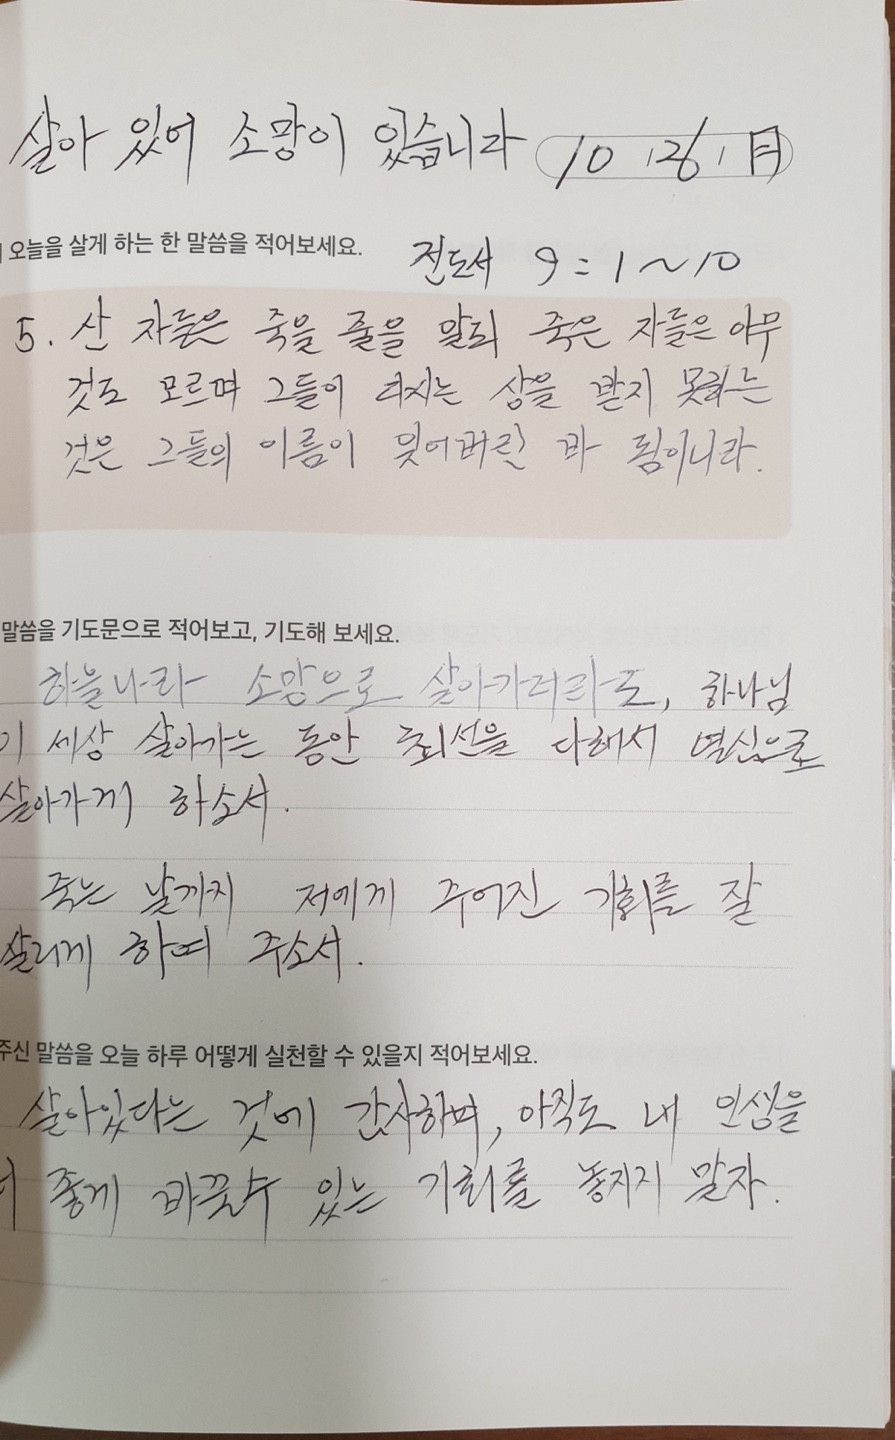 살아 있어 소망이 있습니다 10 26 日
오늘을 살게 하는 한 말씀을 적어보세요. 전도서 9:1~10
5. 산 자들은 죽을 줄을 알되 죽은 자들은 아무
것도 모르며 그들이 다시는 상을 받지 못하는
것은 그들의 이름이 잊어버린 바 됨이니라.
말씀을 기도문으로 적어보고, 기도해 보세요.
하늘나라 소망으로 살아가더라도, 하나님
이 세상 살아가는 동안 최선을 다해서 열심으로
살아가게 하소서.
죽는 날까지 저에게 주어진 기회를 잘
살리게 하여 주소서.
주신 말씀을 오늘 하루 어떻게 실천할 수 있을지 적어보세요.
살아있다는 것에 감사하며, 아직도 내 인생을
더 좋게 바꿀수 있는 기회를 놓지지 말자.